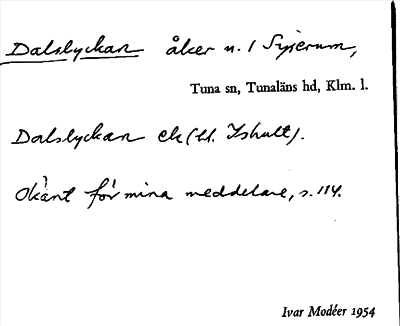 Dalslyckan åker n. 1 Syserum,
Tuna sn, Tunaläns hd, Klm. l.
Dalslyckan ek (tl. Ishult).
Okänt för mina meddelare, s. 114.
Ivar Modéer 1954